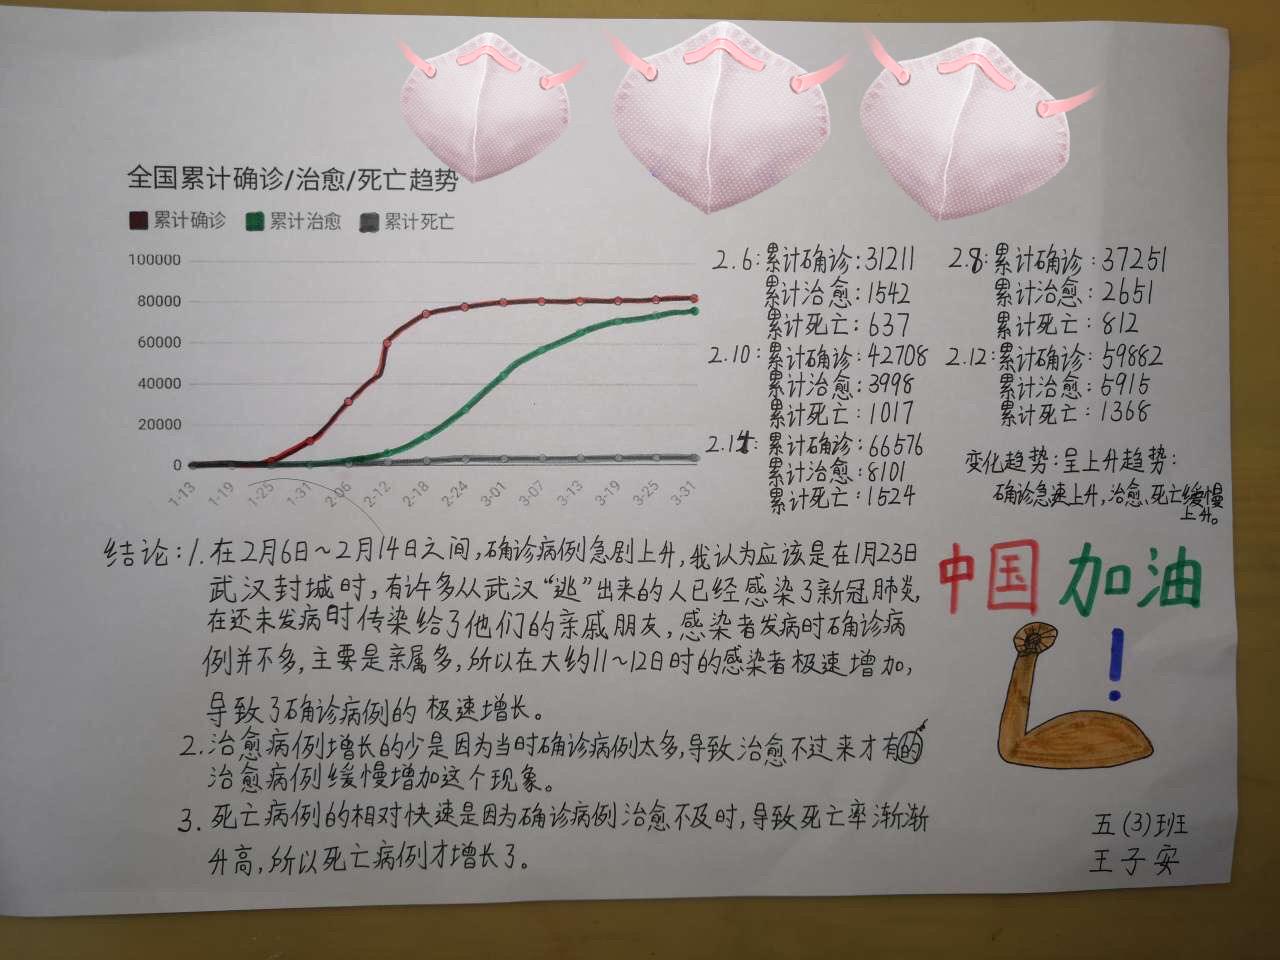 全国累计确诊/治愈/死亡趋势
累计确诊 累计治愈 累计死亡
100000
80000
60000
40000
20000
0
1-13 1-19 1-25 1-31 2-06 2-12 2-18 2-24 3-01 3-07 3-13 3-19 3-25 3-31
2.6:累计确诊:31211
累计治愈:1542
累计死亡:637
2.8:累计确诊:37251
累计治愈:2651
累计死亡:812
2.10:累计确诊:42708
累计治愈:3998
累计死亡:1017
2.12:累计确诊:59882
累计治愈:5915
累计死亡:1368
2.14:累计确诊:66576
累计治愈:8101
累计死亡:1524
变化趋势:呈上升趋势:
确诊急速上升,治愈、死亡缓慢
上升。
结论:1.在2月6日~2月14日之间,确诊病例急剧上升,我认为应该是在1月23日
武汉封城时,有许多从武汉“逃”出来的人已经感染了新冠肺炎,
在还未发病时传染给了他们的亲戚朋友,感染者发病时确诊病
例并不多,主要是亲属多,所以在大约11~12日时的感染者极速增加,
导致了确诊病例的极速增长。
2.治愈病例增长的少是因为当时确诊病例太多,导致治愈不过来才有的
治愈病例缓慢增加这个现象。
3.死亡病例的相对快速是因为确诊病例治愈不及时,导致死亡率渐渐
升高,所以死亡病例才增长了。
中国加油
!
五(3)班
王子安